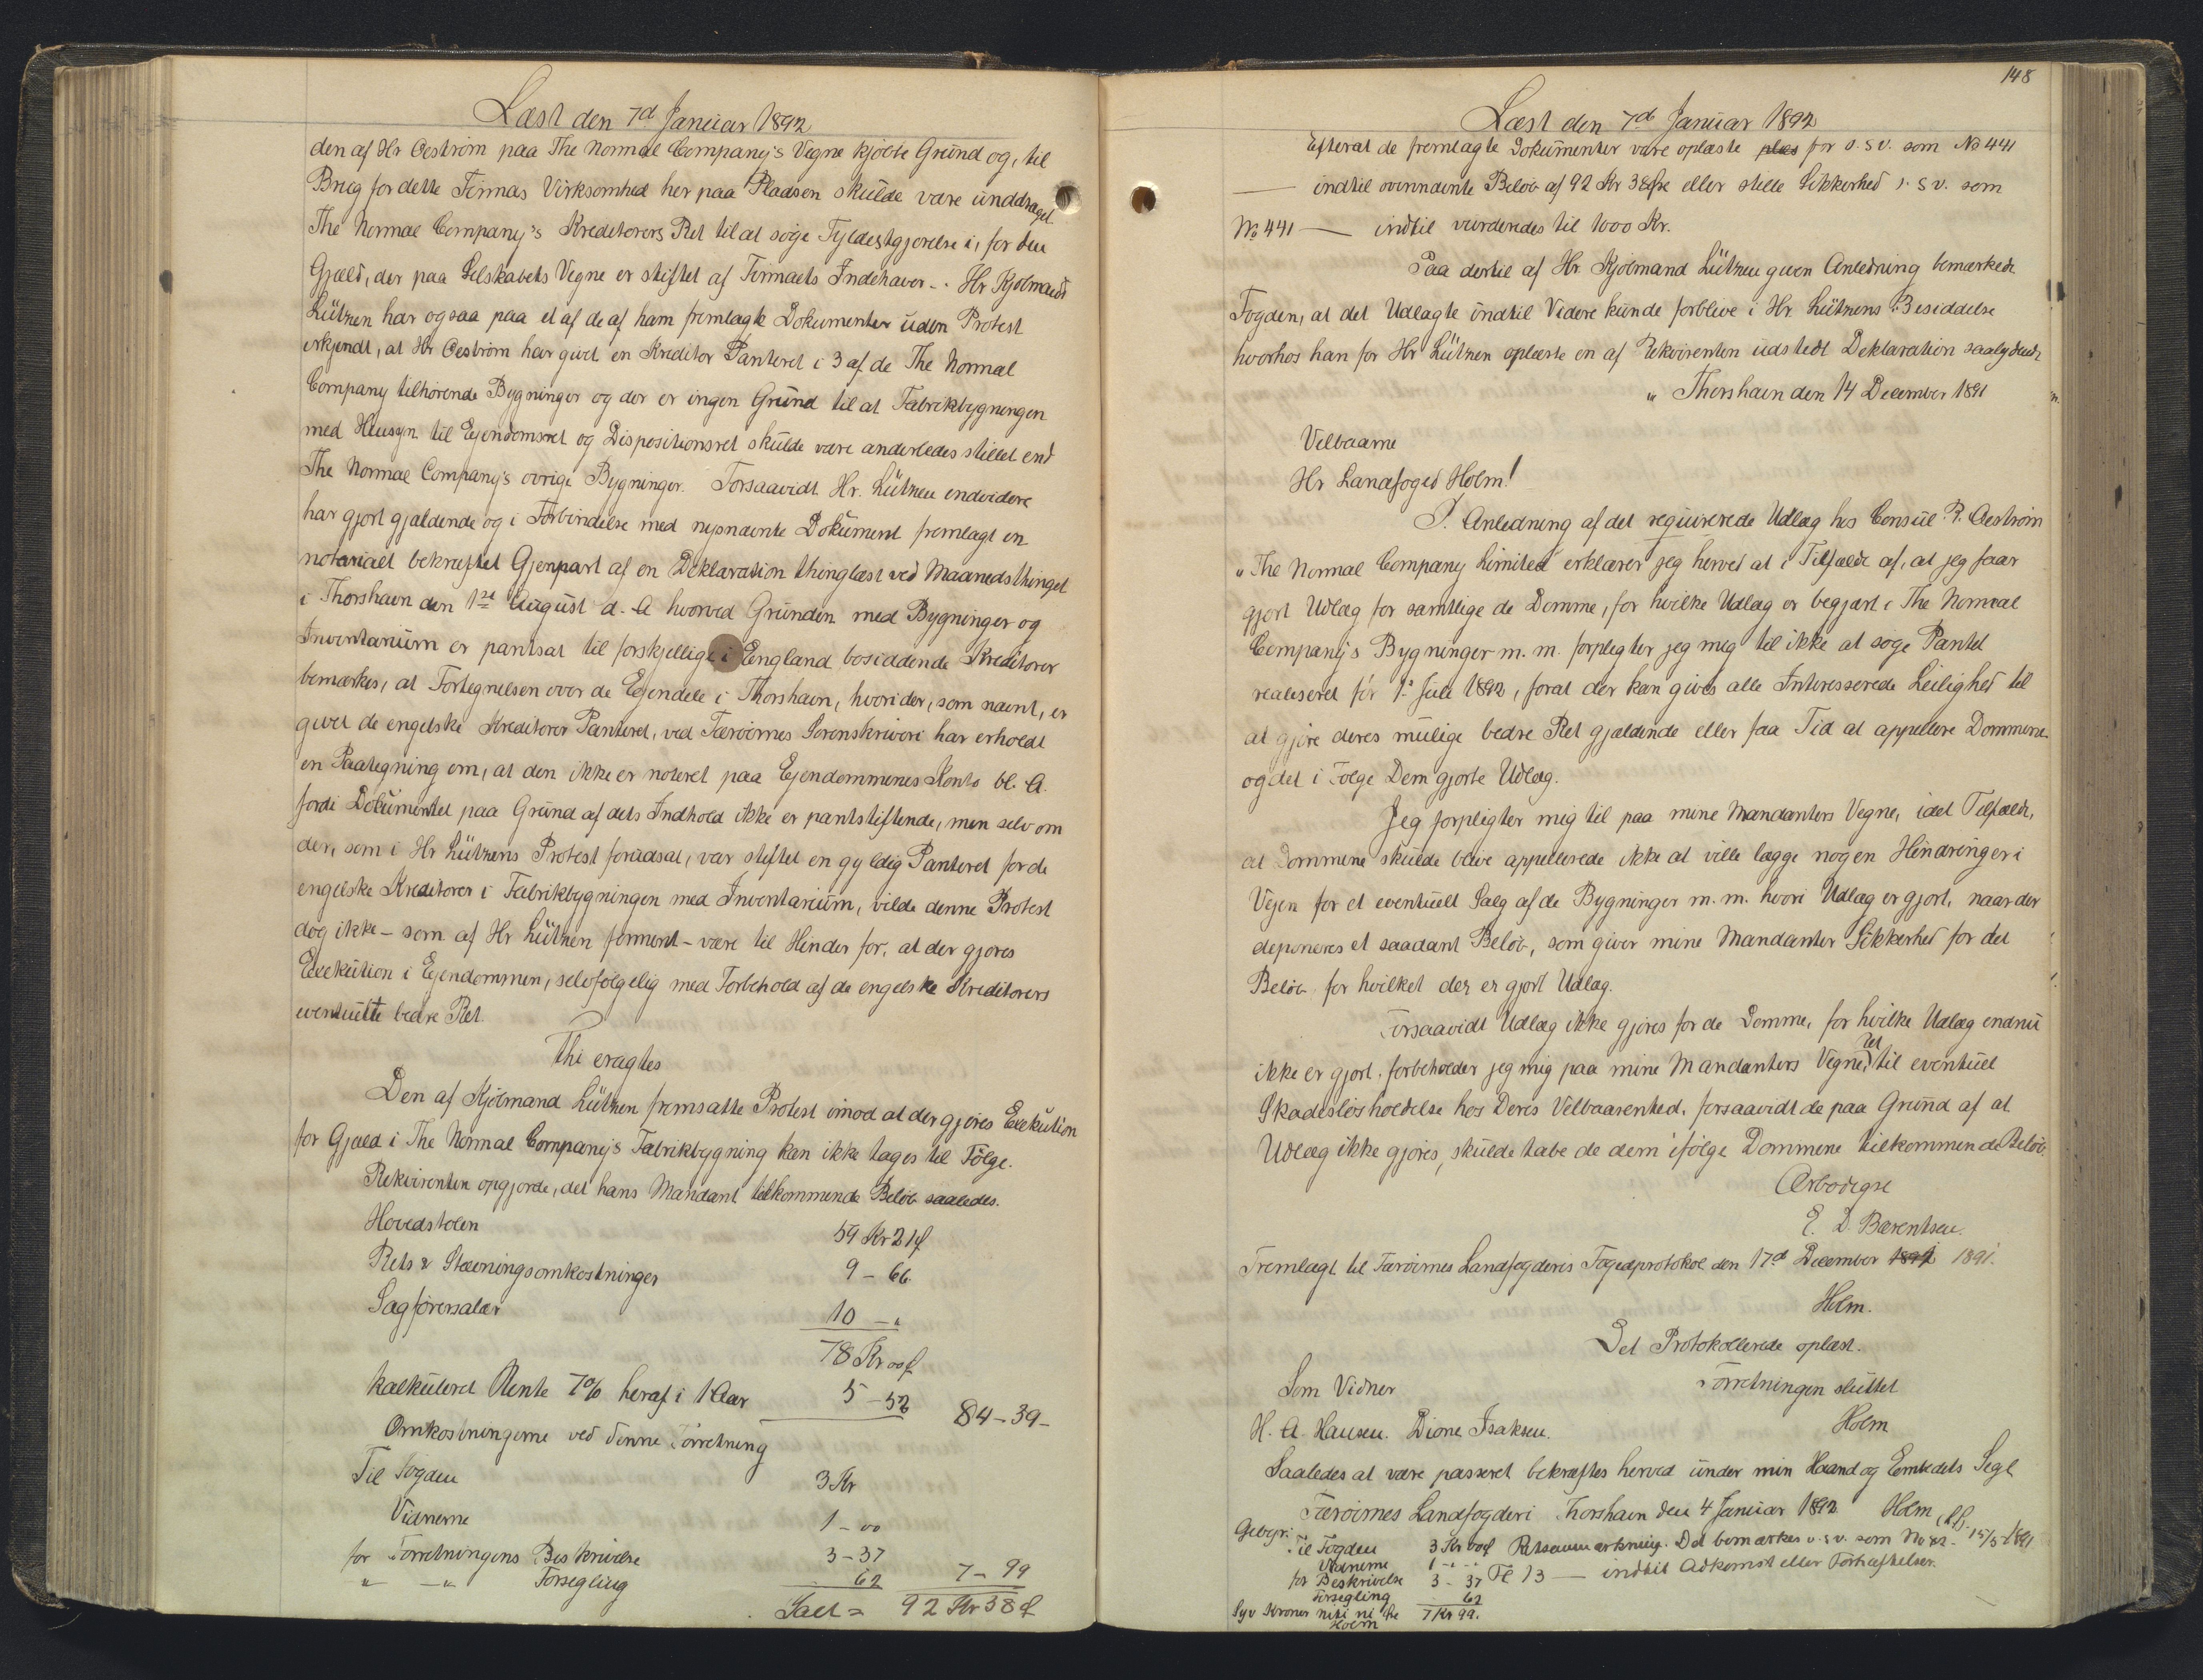 Læst den 7d Januar 1892
den af Hr Oestrøm paa The Normal Company's Vegne kjøbte Grund og, til
Brug for dette Firmas Virksomhed her paa Pladsen skulde være unddraget
The Normal Company's Kreditorers Ret til at søge Fyldestgjørelse i, for den
Gjæld, der paa Selskabets Vegne er stiftet af Firmaets Indehaver. Hr Kjøbmand
Lützen har ogsaa paa et af de af ham fremlagte Dokumenter uden Protest
erkjendt, at Hr Oestrøm har givet en Kreditor Panteret i 3 af de The Normal
Company tilhørende Bygninger og der er ingen Grund til at Fabrikbygningen
med Hensyn til Ejendomsret og Dispositionsret skulde være anderledes stillet end
The Normal Company's øvrige Bygninger. Forsaavidt Hr. Lützen endvidere
har gjort gjældende og i Forbindelse med nysnævnte Dokument fremlagt en
notarialt bekræftet Gjenpart af en Deklaration thinglæst ved Maanedsthinget
i Thorshavn den 1ste August d. A hvorved Grunden med Bygninger og
Inventarium er pantsat til forskjellige i England bosiddende Kreditorer
bemærkes, at Fortegnelsen over de Ejendele i Thorshavn, hvori der, som nævnt, er
givet de engelske Kreditorer Panteret, ved Færøernes Sorenskriveri har erholdt
en Paategning om, at den ikke er noteret paa Ejendommenes Konto bl. A.
fordi Dokumentet paa Grund af dets Indhold ikke er pantstiftende, men selv om
der, som i Hr Lützens Protest forudsat, var stiftet en gyldig Panteret for de
engelske Kreditorer i Fabrikbygningen med Inventarium, vilde denne Protest
dog ikke – som af Hr Lützen forment – være til Hinder for, at der gjøres
Exekution i Ejendommen, selvfølgelig med Forbehold af de engelske Kreditorers
eventuelle bedre Ret.
Thi eragtes
Den af Kjøbmand Lützen fremsatte Protest imod at der gjøres Exekution
for Gjæld i The Normal Company's Fabrikbygning kan ikke tages til Følge.
Rekvirenten opgjorde, det hans Mandant tilkommende Beløb saaledes.
Hovedstolen 59 Kr 21
Rets & Stævningsomkostninger 9 – 66
Sagførersalær 10 – "
78 Kr
Kalkuleret Rente 7% heraf i 1 Aar 5 – 52 84 – 39 –
Omkostningerne ved denne Forretning
Til Fogden 3 Kr
Vidnerne 1 – 00
for Forretningens Beskrivelse 3 – 37
" – " Forsegling 62 7 – 99
Ialt = 92 Kr 38
148
Læst den 7de Januar 1892
Efterat de fremlagte Dokumenter vare oplæste for o. s v. som No 441
— indtil ovennævnte Beløb af 92 Kr 38 Øre eller stille Sikkerhed o. s v. som
No 441 — indtil vurderedes til 1000 Kr.
Paa dertil af Hr. Kjøbmand Lützen given Anledning bemærkede
Fogden, at det Udlagte indtil Videre kunde forblive i Hr. Lützens Besiddelse
hvorhos han for Hr Lützen oplæste en af Rekvirenten udstedt Deklaration saalydende
" Thorshavn den 14 December 1891
Velbaarne
Hr Landfoged Holm!
I Anledning af det requirerede Udlæg hos Consul R. Oestrøm
" The Normal Company Limited erklærer jeg herved at i Tilfælde af, at jeg faar
gjort Udlæg for samtlige de Domme, for hvilke Udlæg er begjært i The Normal
Company's Bygninger m. m. forpligter jeg mig til ikke at søge Pantet
realiseret før 1. Juli 1892, forat der kan gives alle Interesserede Leilighed til
at gjøre deres mulige bedre Ret gjældende eller faa Tid at appellere Dommene
og det i Følge Dem gjorte Udlæg.
Jeg forpligter mig til paa mine Mandanters Vegne, i det Tilfælde,
at Dommene skulde blive appellerede ikke at ville lægge nogen Hindringer i
Vejen for et eventuelt Salg af de Bygninger m. m. hvori Udlæg er gjort, naar der
deponeres et saadant Beløb, som giver mine Mandanter Sikkerhed for det
Beløb for hvilket der er gjort Udlæg.
Forsaavidt Udlæg ikke gjøres for de Domme, for hvilke Udlæg endnu
ikke er gjort, forbeholder jeg mig paa mine Mandanters Vegne, Ret til eventuel
Skadesløsholdelse hos Deres Velbaarenhed, forsaavidt de paa Grund af at
Udlæg ikke gjøres, skulde tabe de dem ifølge Dommene tilkommende Beløb.
Ærbødigst
E. D. Bærentsen.
Fremlagt til Færøernes Landfogderis Fogedprotokol den 17d December 1891.
Holm.
Det Protokollerede oplæst.
Forretningen sluttet
Som Vidner Holm
H. A. Hansen. Dione Isaksen.
Saaledes at være passeret bekræftes herved under min Haand og Embedets Segl
Færøernes Landfogderi Thorshavn den 4 Januar 1892 Holm
Gebyr:
Til Fogden 3 Kr Retsanmærkning. Det bemærkes o. s v. som No 42 – 15/5 1891
Vidnerne 1 – –
for Beskrivelse 3 – 37 Fl 13 — indtil Adkomst eller Forhæftelser.
Forsegling 62
Syv Kroner niti ni Øre 7 Kr 99.
Holm